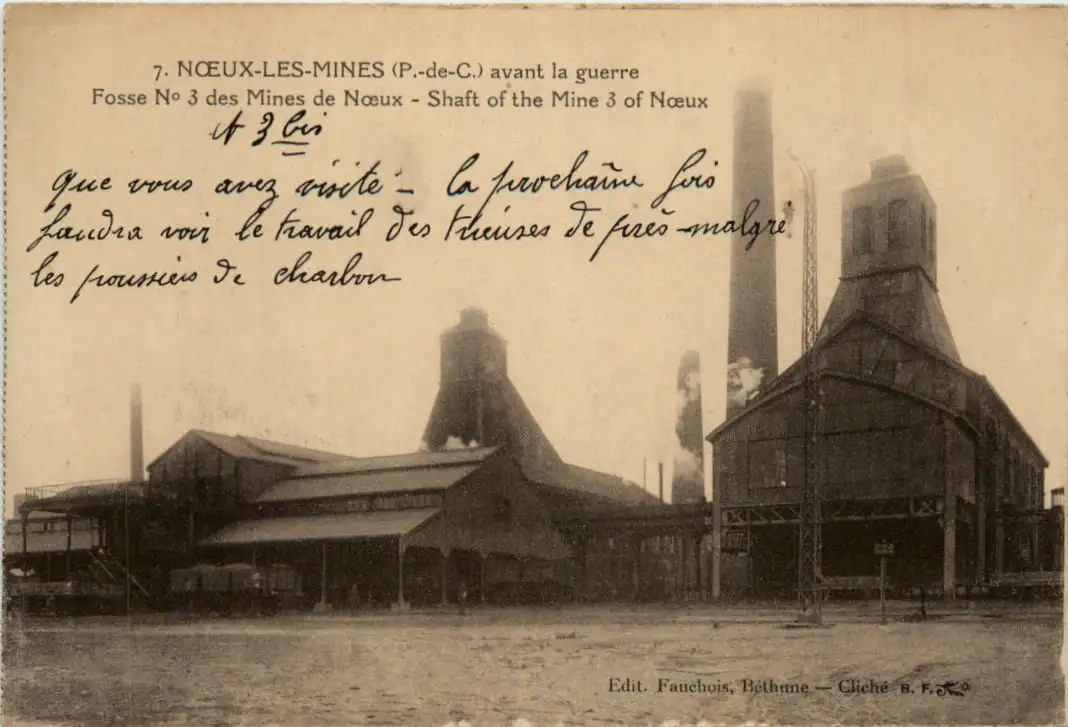 7. NŒUX-LES-MINES (P.-de-C.) avant la guerre
Fosse No 3 des Mines de Nœux - Shaft of the Mine 3 of Nœux
et 3 bis
que vous avez visité - la prochaîne fois
faudra voir le travail des trieuses de près - malgré
les poussiers de charbon
Edit. Fauchois, Béthune — Cliché B. F.